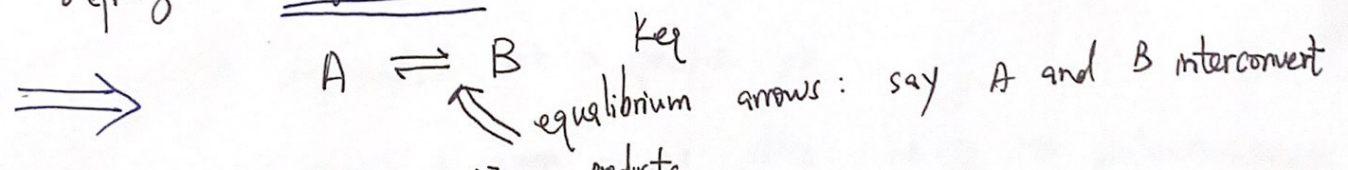 A ⇌ B Keq
equalibrium arrows: say A and B interconvert